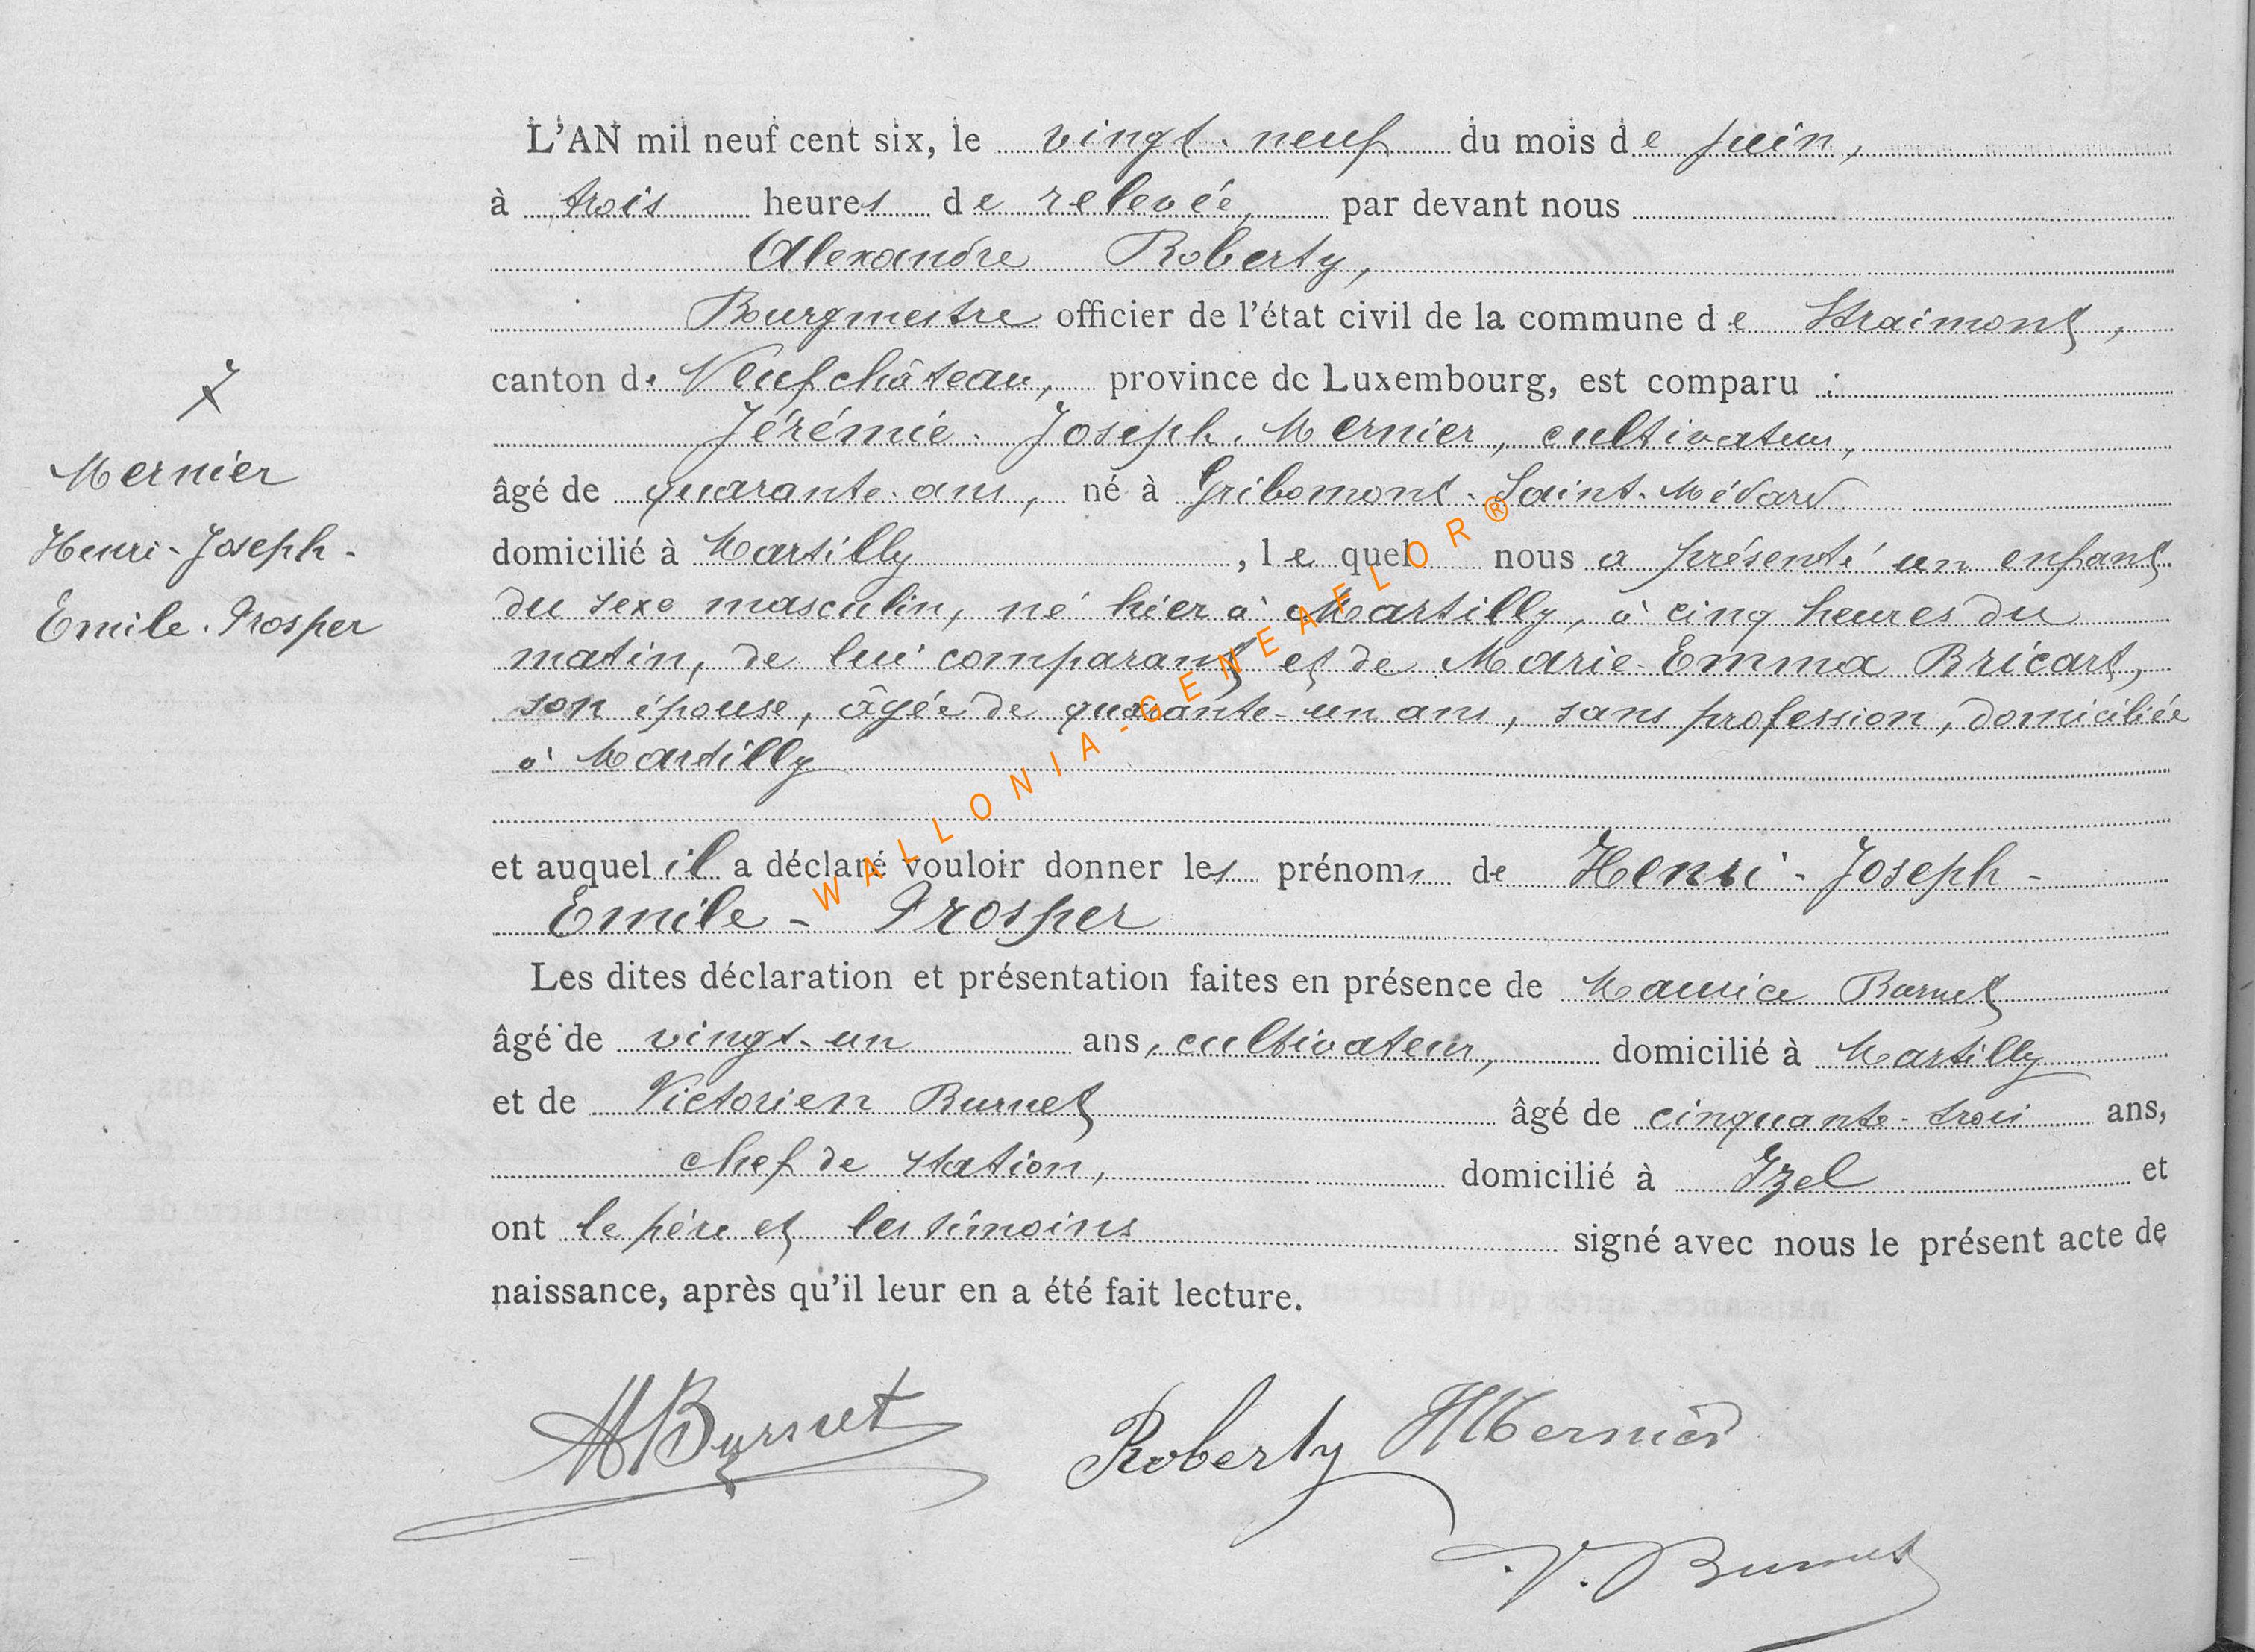 L'AN mil neuf cent six, le vingt-neuf du mois de juin,
à trois heures de relevée, par devant nous
Alexandre Roberty,
Bourgmestre officier de l'état civil de la commune de Straimont,
canton de Neufchâteau, province de Luxembourg, est comparu :
Jérémie-Joseph Mernier, cultivateur,
âgé de quarante ans, né à Gribomont-Saint-Médard
domicilié à Martilly, lequel nous a présenté un enfant
du sexe masculin, né hier à Martilly, à cinq heures du
matin, de lui comparant et de Marie-Emma Bricart,
son épouse, âgée de quarante-un ans, sans profession, domiciliée
à Martilly
et auquel il a déclaré vouloir donner les prénoms de Henri-Joseph-
Emile-Prosper
Les dites déclaration et présentation faites en présence de Maurice Burnet
âgé de vingt-un ans, cultivateur, domicilié à Martilly
et de Victorien Burnet âgé de cinquante-trois ans,
chef de station, domicilié à Izel et
ont le père et les témoins signé avec nous le présent acte de
naissance, après qu'il leur en a été fait lecture.
Mernier
Henri-Joseph-
Emile-Prosper
WALLONIA-GENEAFLOR®
MBurnet
Roberty
JMernier
V. Burnet